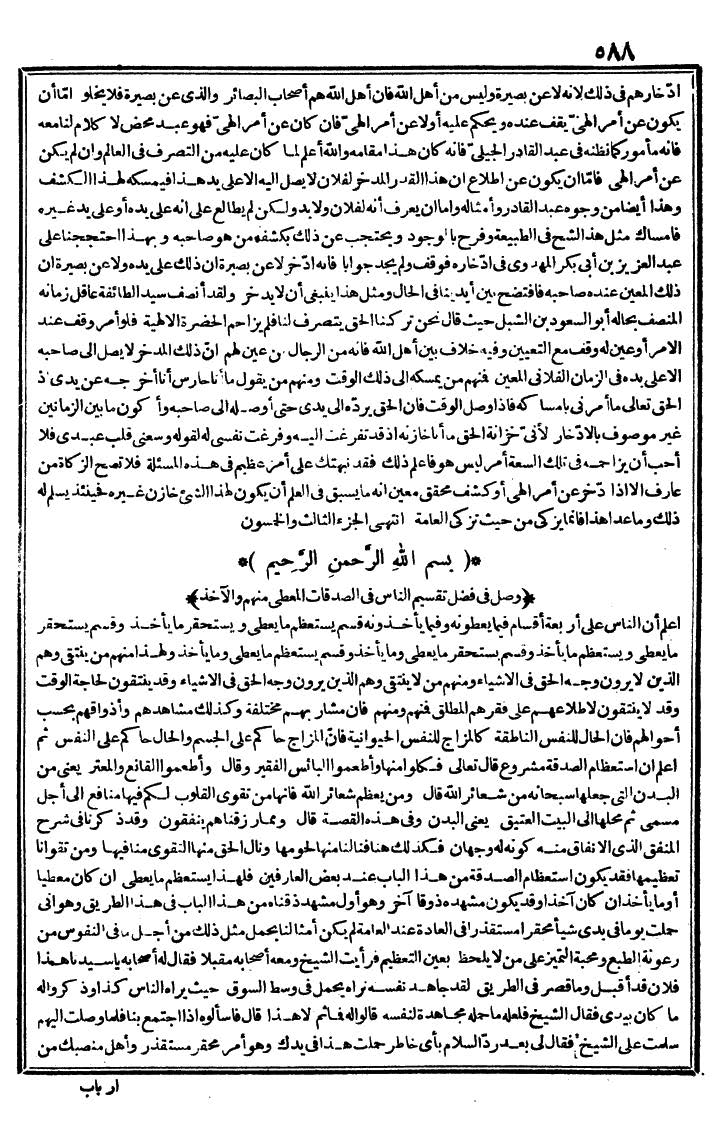 ٥٨٨
ادّخارهم فى ذلك لانه لا عن بصيرة وليس من أهل الله فان أهل الله هم أصحاب البصائر والذى عن بصيرة فلا يخلو امّا أن
يكون عن أمر الهىّ يقف عنده ويحكم عليه أو لا عن أمر الهىّ فان كان عن أمر الهىّ فهو عبد محض لا كلام لنا معه
فانه مأمور كما نظنه فى عبد القادر الجيلى فانه كان هذا مقامه والله أعلم لما كان عليه من التصرف فى العالم وان لم يكن
عن أمر الهى فامّا ان يكون عن اطلاع ان هذا القدر المدخر لفلان لا يصل اليه الا على يد هذا فيمسكه لهذا الكشف
وهذا أيضا من وجوه عبد القادر وأمثاله واما ان يعرف أنه لفلان ولا بد ولكن لم يطالع على انه على يده أو على يد غيره
فامساك مثل هذا الشح فى الطبيعة وفرح بالوجود ويحتجب عن ذلك بكشفه من هو صاحبه وبهذا احتججنا على
عبد العزيز بن أبى بكر المهدوى فى ادّخاره فوقف ولم يجد جوابا فانه ادّخر لا عن بصيرة ان ذلك على يده ولا عن بصيرة ان
ذلك المعين عنده صاحبه فافتضح بين أيدينا فى الحال ومثل هذا ينبغى أن لا يدخر ولقد أنصف سيد الطائفة عاقل زمانه
المنصف بحاله أبو السعود بن الشبل حيث قال نحن تركنا الحق يتصرف لنا فلم يزاحم الحضرة الالهية فلو أمر وقف عند
الامر أو عين له وقف مع التعيين وفيه خلاف بين أهل الله فانه من الرجال من عين لهم انّ ذلك المدخر لا يصل الى صاحبه
الا على يده فى الزمان الفلانى المعين فمنهم من يمسكه الى ذلك الوقت ومنهم من يقول ما أنا حارس أنا أخرجه عن يدى اذ
الحق تعالى ما أمرنى بامساكه فاذا وصل الوقت فان الحق يردّه الى يدى حتى أوصله الى صاحبه وأكون ما بين الزمانين
غير موصوف بالادّخار لأنى خزانة الحق ما أنا خازنه اذ قد تفرغت اليه وفرغت نفسى له لقوله وسعنى قلب عبدى فلا
أحب أن يزاحمه فى تلك السعة أمر ليس هو فاعلم ذلك فقد نبهتك على أمر عظيم فى هذه المسئلة فلا تصح الزكاة من
عارف الا اذا ادّخر عن أمر الهى أو كشف محقق معين انه ما يسبق فى العلم أن يكون لهذا الشئ خازن غيره فحينئذ يسلم له
ذلك وما عدا هذا فانما يزكى من حيث تزكى العامة انتهى الجزء الثالث والخمسون
*( بسم الله الرّحمن الرّحيم )*
﴿وصل فى فضل تقسيم الناس فى الصدقات المعطى منهم والآخذ﴾
اعلم أن الناس على أربعة أقسام فيما يعطونه وفيما يأخذونه قسم يستعظم ما يعطى ويستحقر ما يأخذ وقسم يستحقر
ما يعطى ويستعظم ما يأخذ وقسم يستحقر ما يعطى وما يأخذ وقسم يستعظم ما يعطى وما يأخذ ولهذا منهم من ينتقى وهم
الذين لا يرون وجه الحق فى الاشياء ومنهم من لا ينتقى وهم الذين يرون وجه الحق فى الاشياء وقد ينتقون لحاجة الوقت
وقد لا ينتقون لاطلاعهم على فقرهم المطلق فمنهم ومنهم فان مشاربهم مختلفة وكذلك مشاهدهم وأذواقهم بحسب
أحوالهم فان الحال للنفس الناطقة كالمزاج للنفس الحيوانية فانّ المزاج حاكم على الجسم والحال حاكم على النفس ثم
اعلم ان استعظام الصدقة مشروع قال تعالى فكلوا منها وأطعموا البائس الفقير وقال وأطعموا القانع والمعتر يعنى من
البدن التى جعلها سبحانه من شعائر الله قال ومن يعظم شعائر الله فانها من تقوى القلوب لكم فيها منافع الى أجل
مسمى ثم محلها الى البيت العتيق يعنى البدن وفى هذه القصة قال ومما رزقناهم ينفقون وقد ذكرنا فى شرح
المنفق الذى الانفاق منه كونه له وجهان فكذلك هنا فنالنا منها لحومها ونال الحق منها التقوى منا فيها ومن تقوانا
تعظيمها فقد يكون استعظام الصدقة من هذا الباب عند بعض العارفين فلهذا يستعظم ما يعطى ان كان معطيا
أو ما يأخذ ان كان آخذا وقد يكون مشهده ذوقا آخر وهو أول مشهد ذقناه من هذا الباب فى هذا الطريق وهو انى
حملت يوما فى يدى شيأ محقرا مستقذرا فى العادة عند العامة لم يكن أمثالنا يحمل مثل ذلك من أجل ما فى النفوس من
رعونة الطبع ومحبة التميز على من لا يلحظ بعين التعظيم فرأيت الشيخ ومعه أصحابه مقبلا فقال له أصحابه يا سيدنا هذا
فلان قد أقبل وما قصر فى الطريق لقد جاهد نفسه نراه يحمل فى وسط السوق حيث يراه الناس كذا وذكروا له
ما كان بيدى فقال الشيخ فلعله ما حمله مجاهدة لنفسه قالوا له فما ثم الا هذا قال فاسألوه اذا اجتمع بنا فلما وصلت اليهم
سلمت على الشيخ فقال لى بعد ردّ السلام بأى خاطر حملت هذا فى يدك وهو أمر محقر مستقذر وأهل منصبك من
ارباب